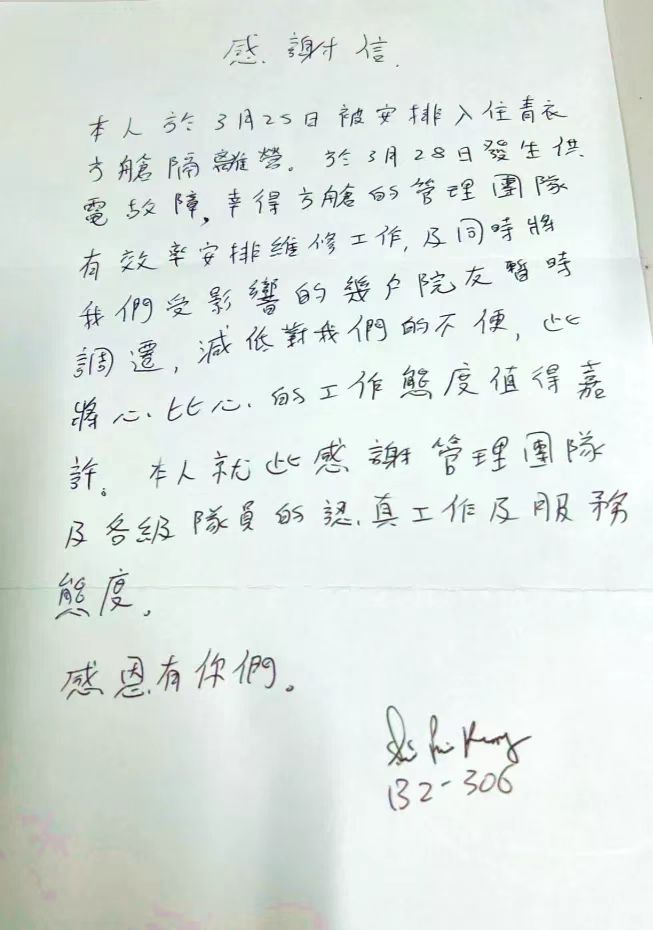 感謝信.
本人於3月25日被安排入住青衣
方艙隔離營。於3月28日發生供
電故障,幸得方艙的管理團隊
有效率安排維修工作,及同時將
我們受影響的幾戶院友暫時
調遷,減低對我們的不便,此
將心比心的工作態度值得嘉
許。本人就此感謝管理團隊
及各級隊員的認真工作及服務
態度。
感恩有你們。
132-306